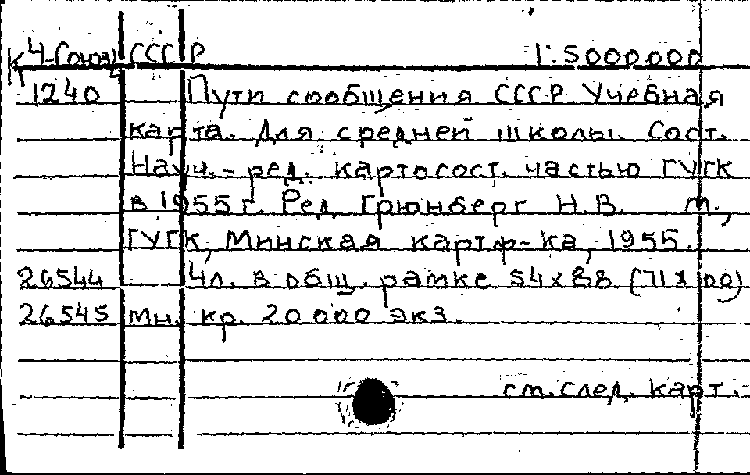 К 4-Союз СССР 1:5000000
1240 Пути сообщения СССР Учебная
карта. Для средней школы. Сост.
Науч.-ред. картосост. частью ГУГК
в 1955 г. Ред. Грюнберг Н.В. М.,
ГУГК, Минская картф-ка, 1955.
26544 4л. в общ. рамке 54х88 (71х100)
26545 мн. кр. 20000 экз.
см. след. карт.